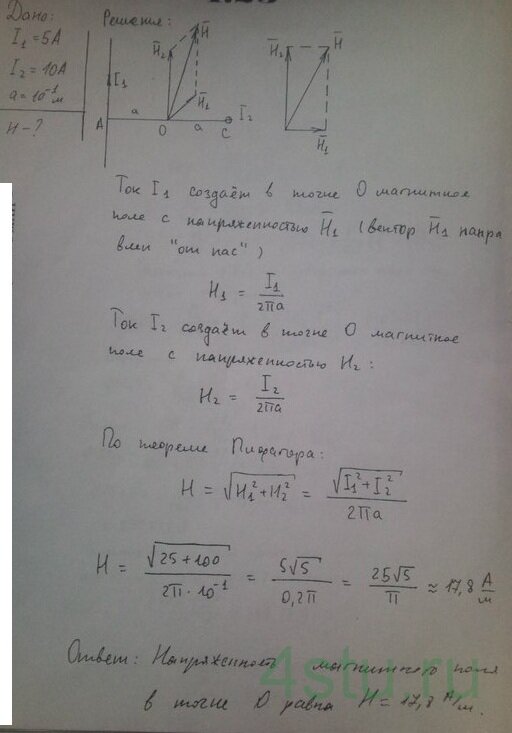 Дано:
I₁ = 5A
I₂ = 10A
a = 10⁻¹ м
H - ?
Решение:
H̄₂ H̄
I₁ H̄₁ I₂
A a O a C
H̄₂ H̄
H̄₁
Ток I₁ создаёт в точке O магнитное
поле с напряженностью H̄₁ (вектор H̄₁ напра
влен "от нас")
H₁ = I₁ / 2πa
Ток I₂ создаёт в точке O магнитное
поле с напряженностью H₂:
H₂ = I₂ / 2πa
По теореме Пифагора:
H = √(H₁² + H₂²) = √(I₁² + I₂²) / 2πa
H = √(25 + 100) / 2π · 10⁻¹ = 5√5 / 0,2π = 25√5 / π ≈ 17,8 А/м
Ответ: Напряженность магнитного поля
в точке O равна H = 17,8 А/м.
4stu.ru